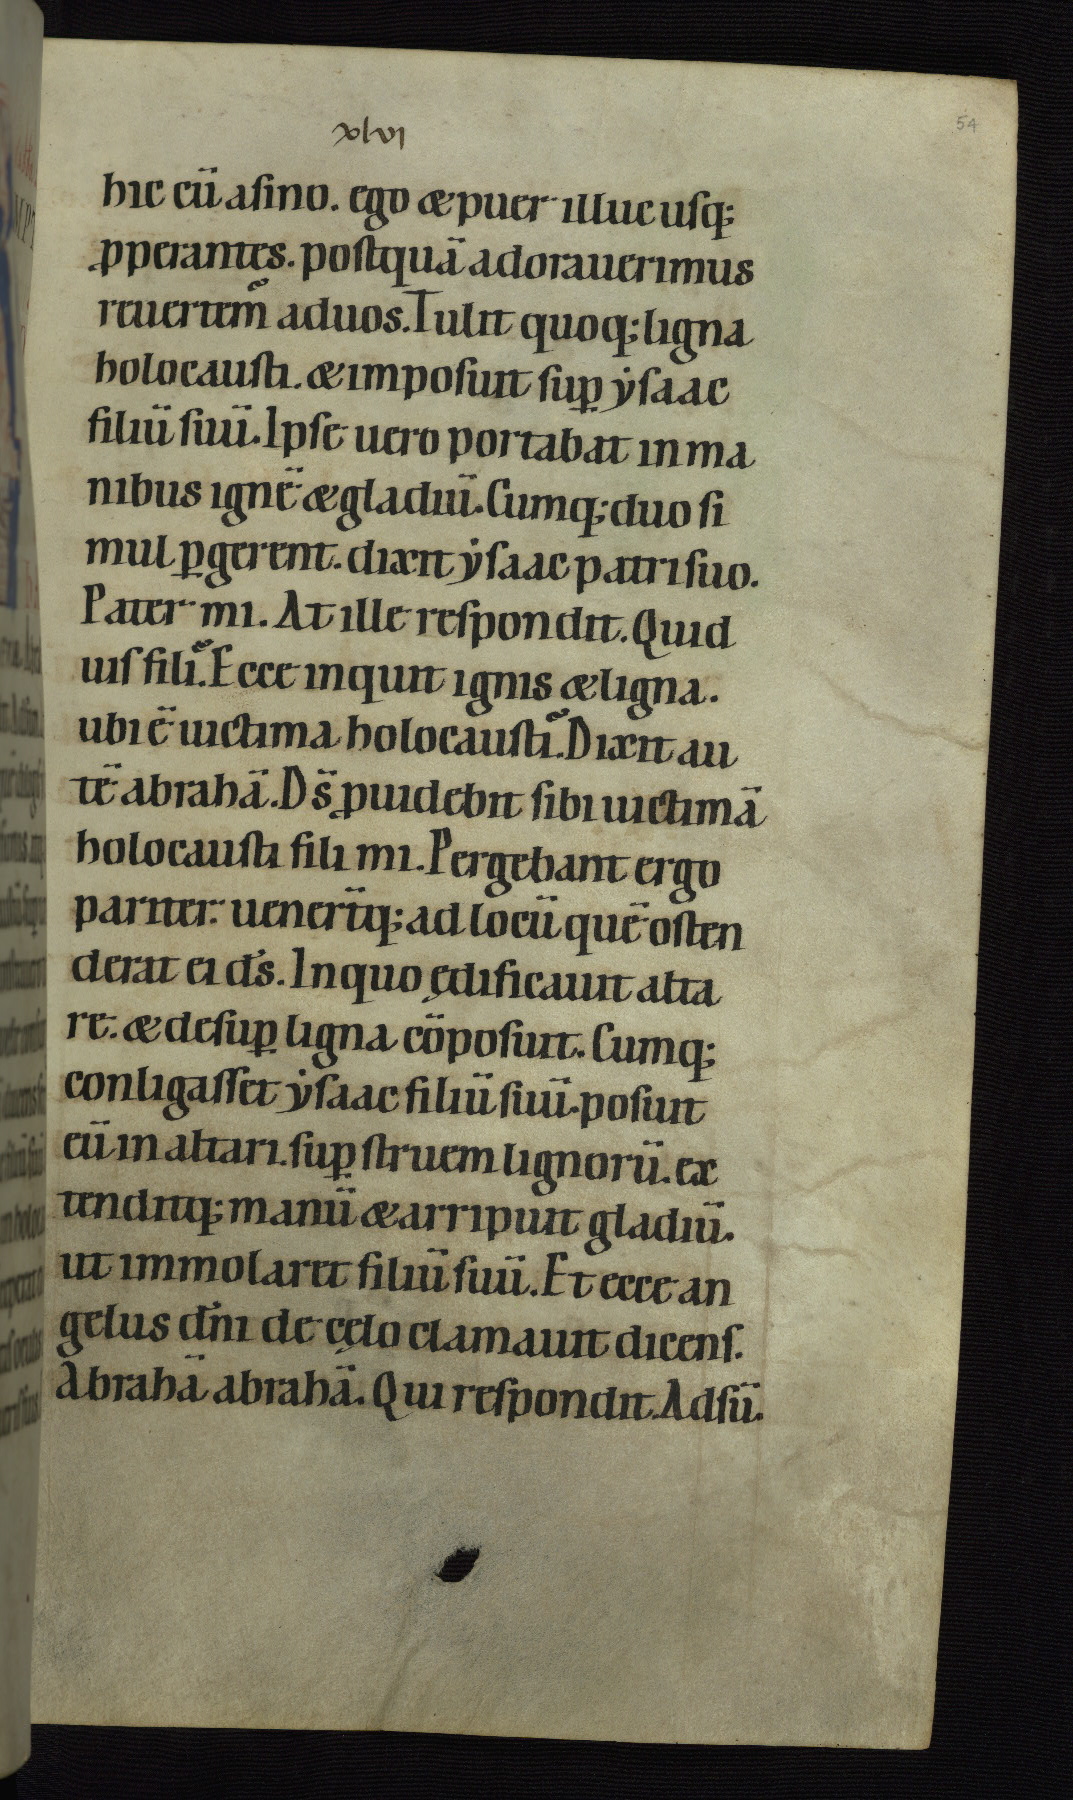 xlvi
54
hic cū asino. ego & puer illuc usq;
ꝓperantes. postquā adorauerimus
reuertem᷒ ad uos. Tulit quoq; ligna
holocausti. & imposuit sup̱ ẏsaac
filiū suū. Ipse uero portabat in ma
nibus ignē & gladiū. Cumq; duo si
mul ꝑgerent. dixit ẏsaac patri suo.
Pater mi. At ille respondit. Quid
uis fili? Ecce inquit ignis & ligna.
ubi ē uictima holocausti? Dixit au
tē abrahā. Ds̄ ꝓuidebit sibi uictimā
holocausti fili mi. Pergebant ergo
pariter. uenert̄q; ad locū quē osten
derat ei ds̄. In quo ędificauit alta
re. & desuꝑ ligna cōposuit. Cumq;
conligasset ẏsaac filiū suū. posuit
eū in altari. suꝑ struem lignorū. ex
tenditq; manū & arripuit gladiū.
ut immolaret filiū suū. Et ecce an
gelus dn̄i de cęlo clamauit dicens.
Abrahā abrahā. Qui respondit. Adsū.